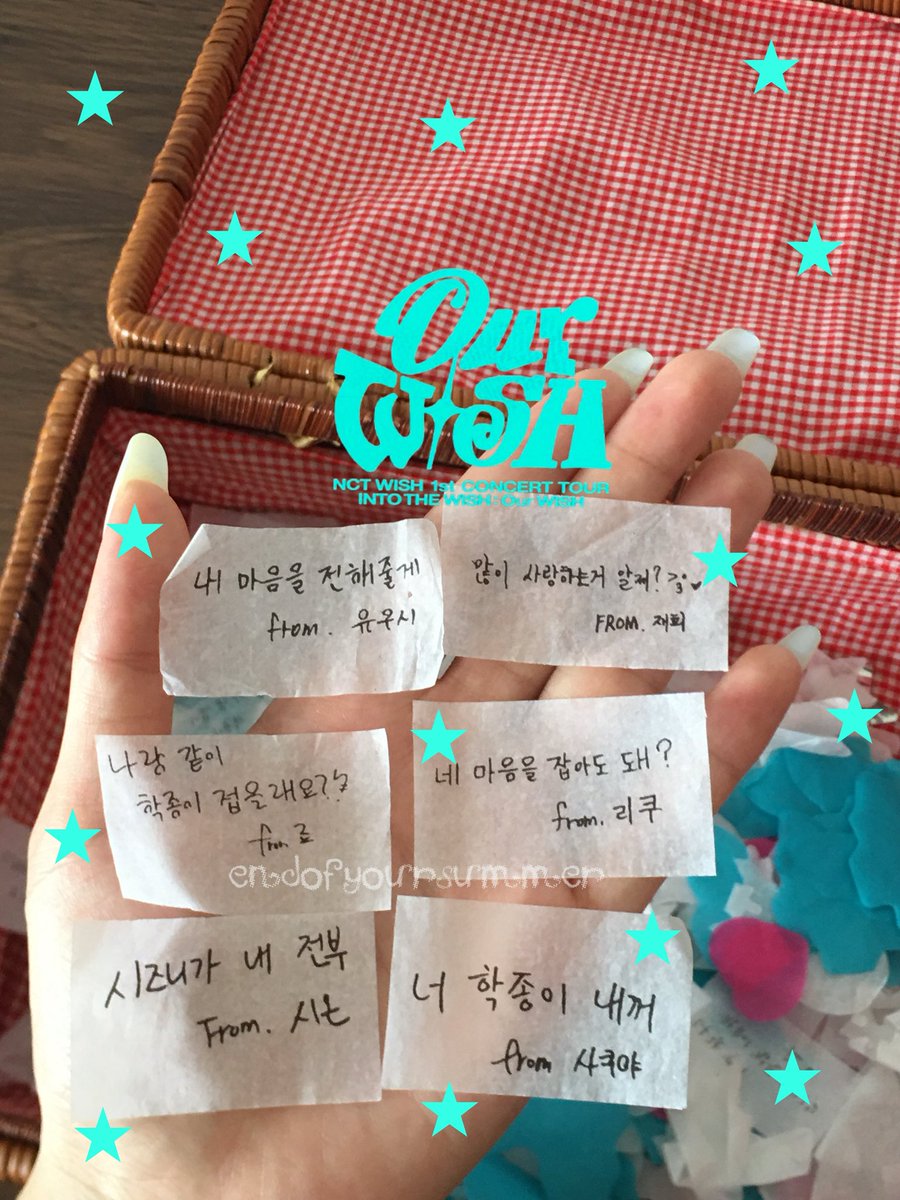 Our
WISH
NCT WISH 1st CONCERT TOUR
INTO THE WISH : Our WISH
내 마음을 전해줄게
from. 유우시
많이 사랑하는거 알제? >3♥
FROM. 재희
나랑 같이
학종이 접을래요??
from. 료
네 마음을 잡아도 돼?
from. 리쿠
endofyoursummer
시즈니가 내 전부
From. 시온
너 학종이 내꺼
from 사쿠야